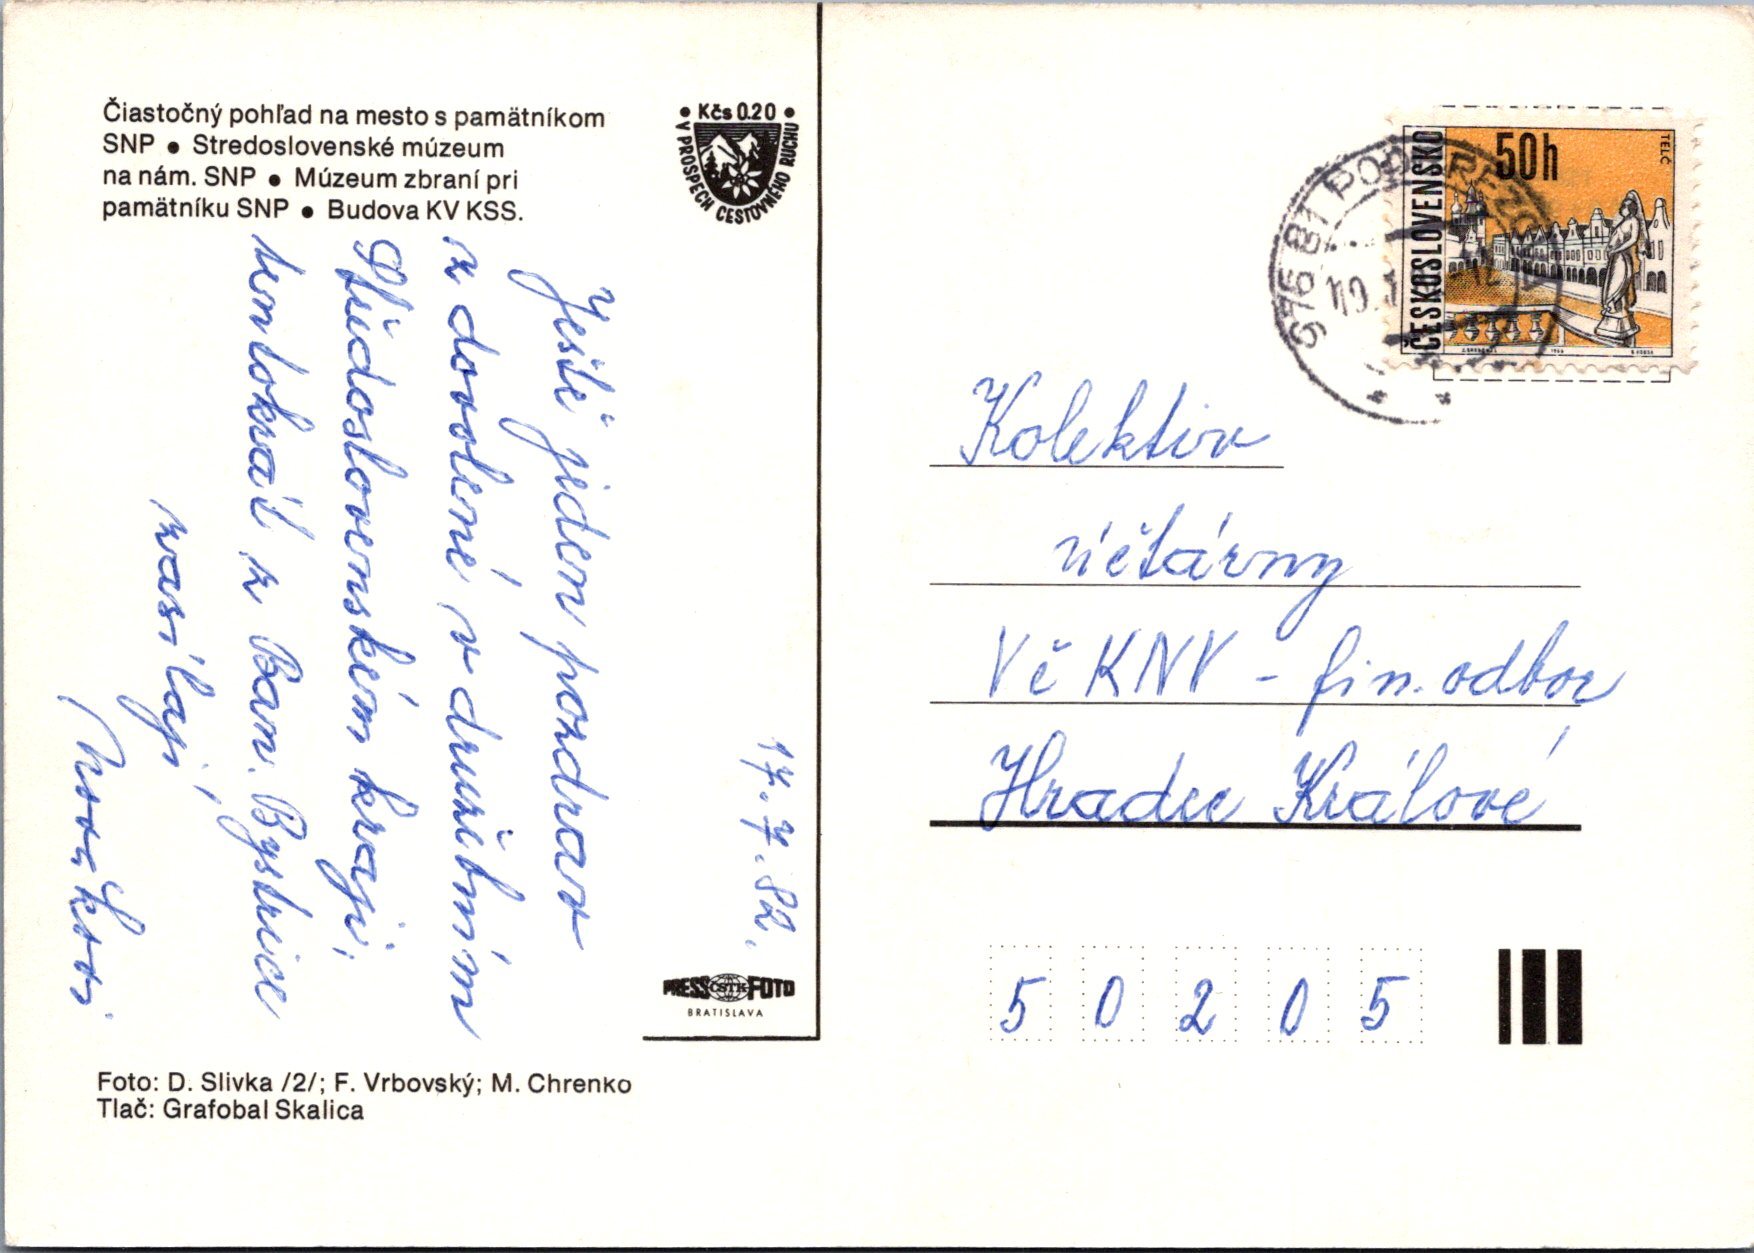 Čiastočný pohľad na mesto s pamätníkom
SNP • Stredoslovenské múzeum
na nám. SNP • Múzeum zbraní pri
pamätníku SNP • Budova KV KSS.
• Kčs 0.20 •
V PROSPECH CESTOVNÉHO RUCHU
17. 7. 82.
Ještě jeden pozdrav
z dovolené v družebním
Středoslovenském kraji,
tentokrát z Ban. Bystrice
zasílají,
Novákovi
PRESS ČSTK FOTO
BRATISLAVA
Foto: D. Slivka /2/; F. Vrbovský; M. Chrenko
Tlač: Grafobal Skalica
ČESKOSLOVENSKO
50h
TELČ
1966
976 81 PODBREZOVÁ
Kolektiv
účtárny
Vč KNV - fin. odbor
Hradec Králové
5 0 2 0 5